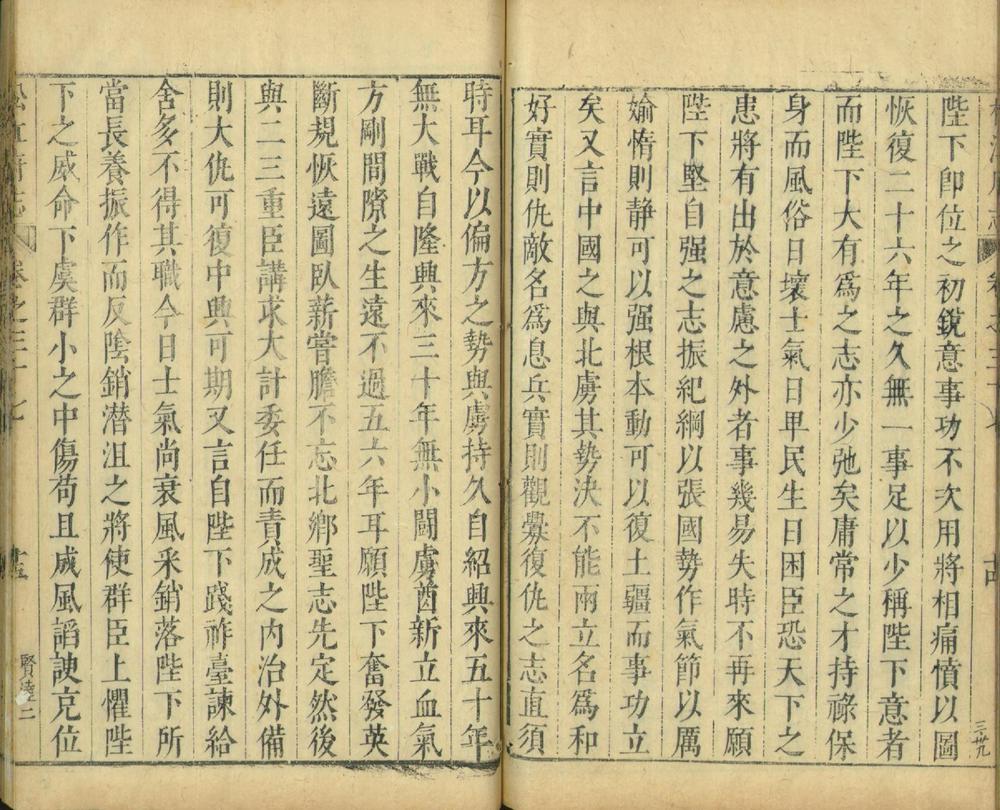 陛下卽位之初銳意事功不次用將相痛憤以圖
恢復二十六年之久無一事足以少稱陛下意者
而陛下大有爲之志亦少弛矣庸常之才持祿保
身而風俗日壞士氣日卑民生日困臣恐天下之
患將有出於意慮之外者事幾易失時不再來願
陛下堅自强之志振紀綱以張國勢作氣節以厲
媮惰則静可以强根本動可以復土疆而事功立
矣又言中國之與北虜其勢決不能兩立名爲和
好實則仇敵名爲息兵實則觀釁復仇之志直須
時耳今以偏方之勢與虜持久自紹興來五十年
無大戰自隆興來三十年無小鬪虜酋新立血氣
方剛間隙之生遠不過五六年耳願陛下奮發英
斷規恢遠圖臥薪嘗膽不忘北鄉聖志先定然後
與二三重臣講求大計委任而責成之內治外備
則大仇可復中興可期又言自陛下踐祚臺諫給
舍多不得其職今日士氣尚衰風采銷落陛下所
當長養振作而反陰銷潜沮之將使群臣上懼陛
下之威命下虞群小之中傷苟且成風謟諛充位
松江府志 卷之三十七 十五
賢達二
十四
三卅九